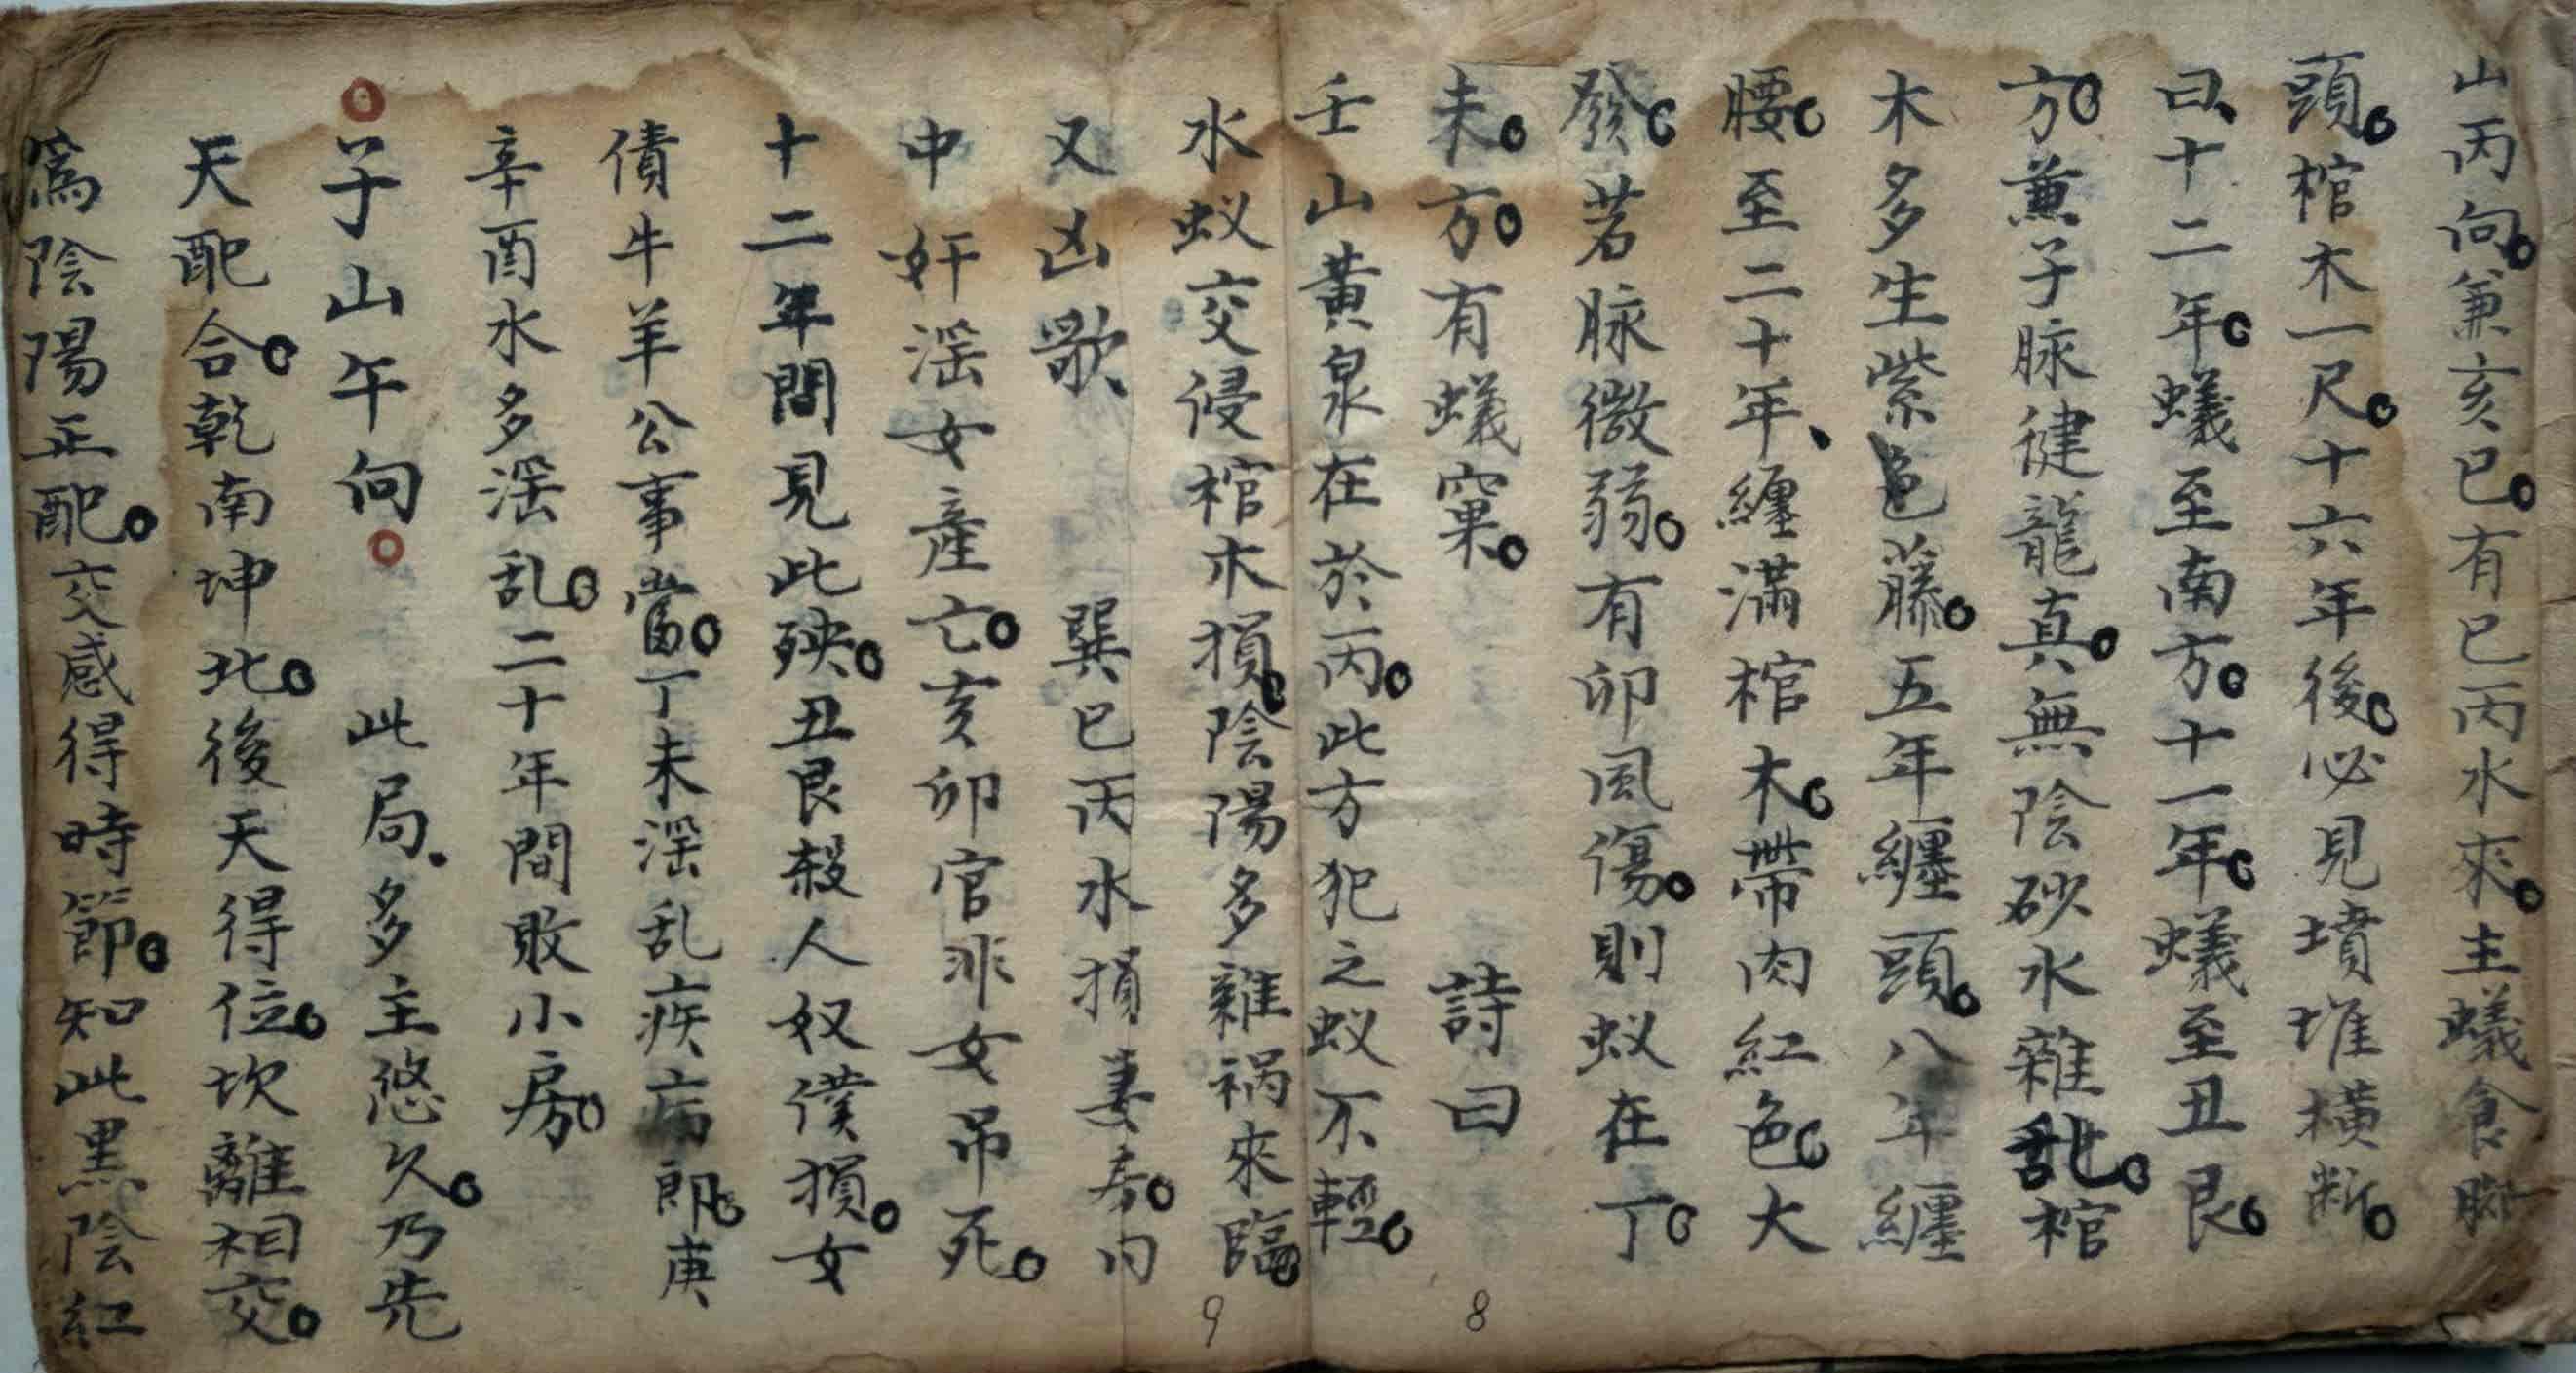 山丙向。兼亥巳。有巳丙水來。主蟻食脚
頭。棺木一尺。十六年後。必見墳堆橫斷。
曰、十二年。蟻至南方。十一年。蟻至丑艮。
方。兼子脉健龍真。無陰砂水雜乱。棺
木多生紫色藤。五年纏頭。八年纏
腰。至二十年、纏滿棺木。帶肉紅色。大
發。若脉微弱。有卯風傷。則蚁在丁。
未。方。有蟻窠。 詩曰
壬山黃泉在於丙。此方犯之蚁不輕。
水蚁交侵棺木損。陰陽多雜禍來臨。
又凶歌 巽巳丙水損妻房。内
中奸滛女產亡。亥卯官非女吊死。
十二年間見此殃。丑艮殺人奴僕損。女
債牛羊公事當。丁未滛乱疾病郎。庚
辛酉水多滛乱。二十年間敗小房。
子山午向。 此局.多主悠久。乃先
天配合。乾南坤北。後天得位。坎離相交。
為陰陽正配。交感得時節。知此黑陰紅
9
8